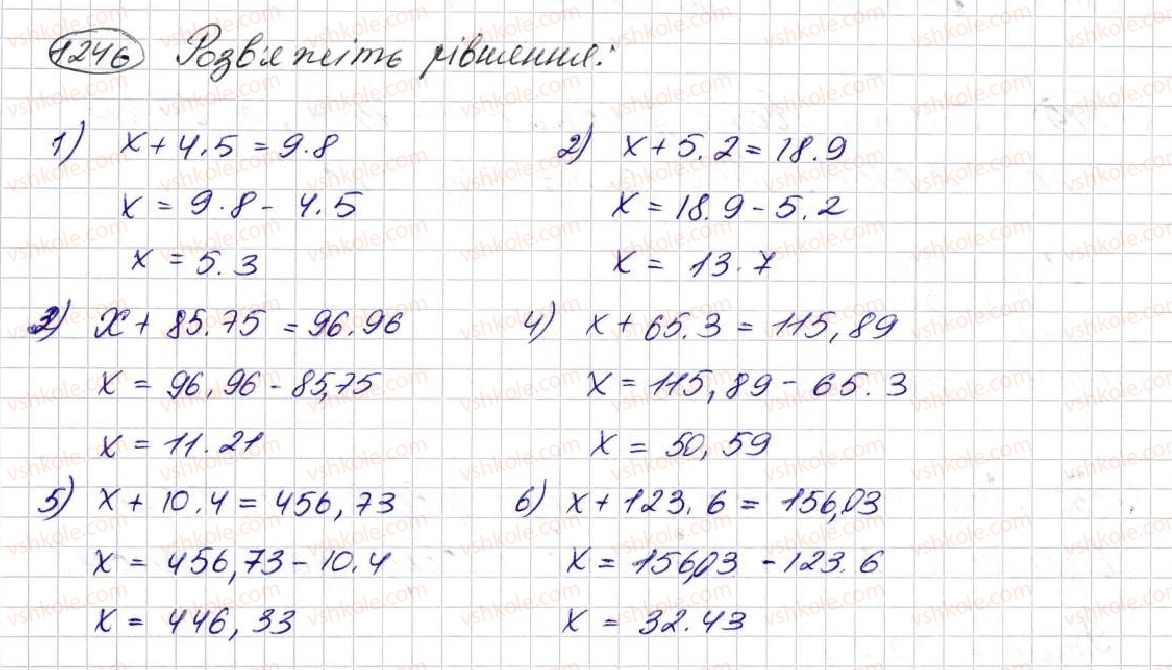 1246 Розв'яжіть рівняння:
1) x + 4.5 = 9.8
x = 9.8 - 4.5
x = 5.3
2) x + 5.2 = 18.9
x = 18.9 - 5.2
x = 13.7
3) x + 85.75 = 96.96
x = 96,96 - 85,75
x = 11.21
4) x + 65.3 = 115,89
x = 115,89 - 65.3
x = 50,59
5) x + 10.4 = 456,73
x = 456,73 - 10.4
x = 446,33
6) x + 123.6 = 156,03
x = 156,03 - 123.6
x = 32.43
vshkole.com